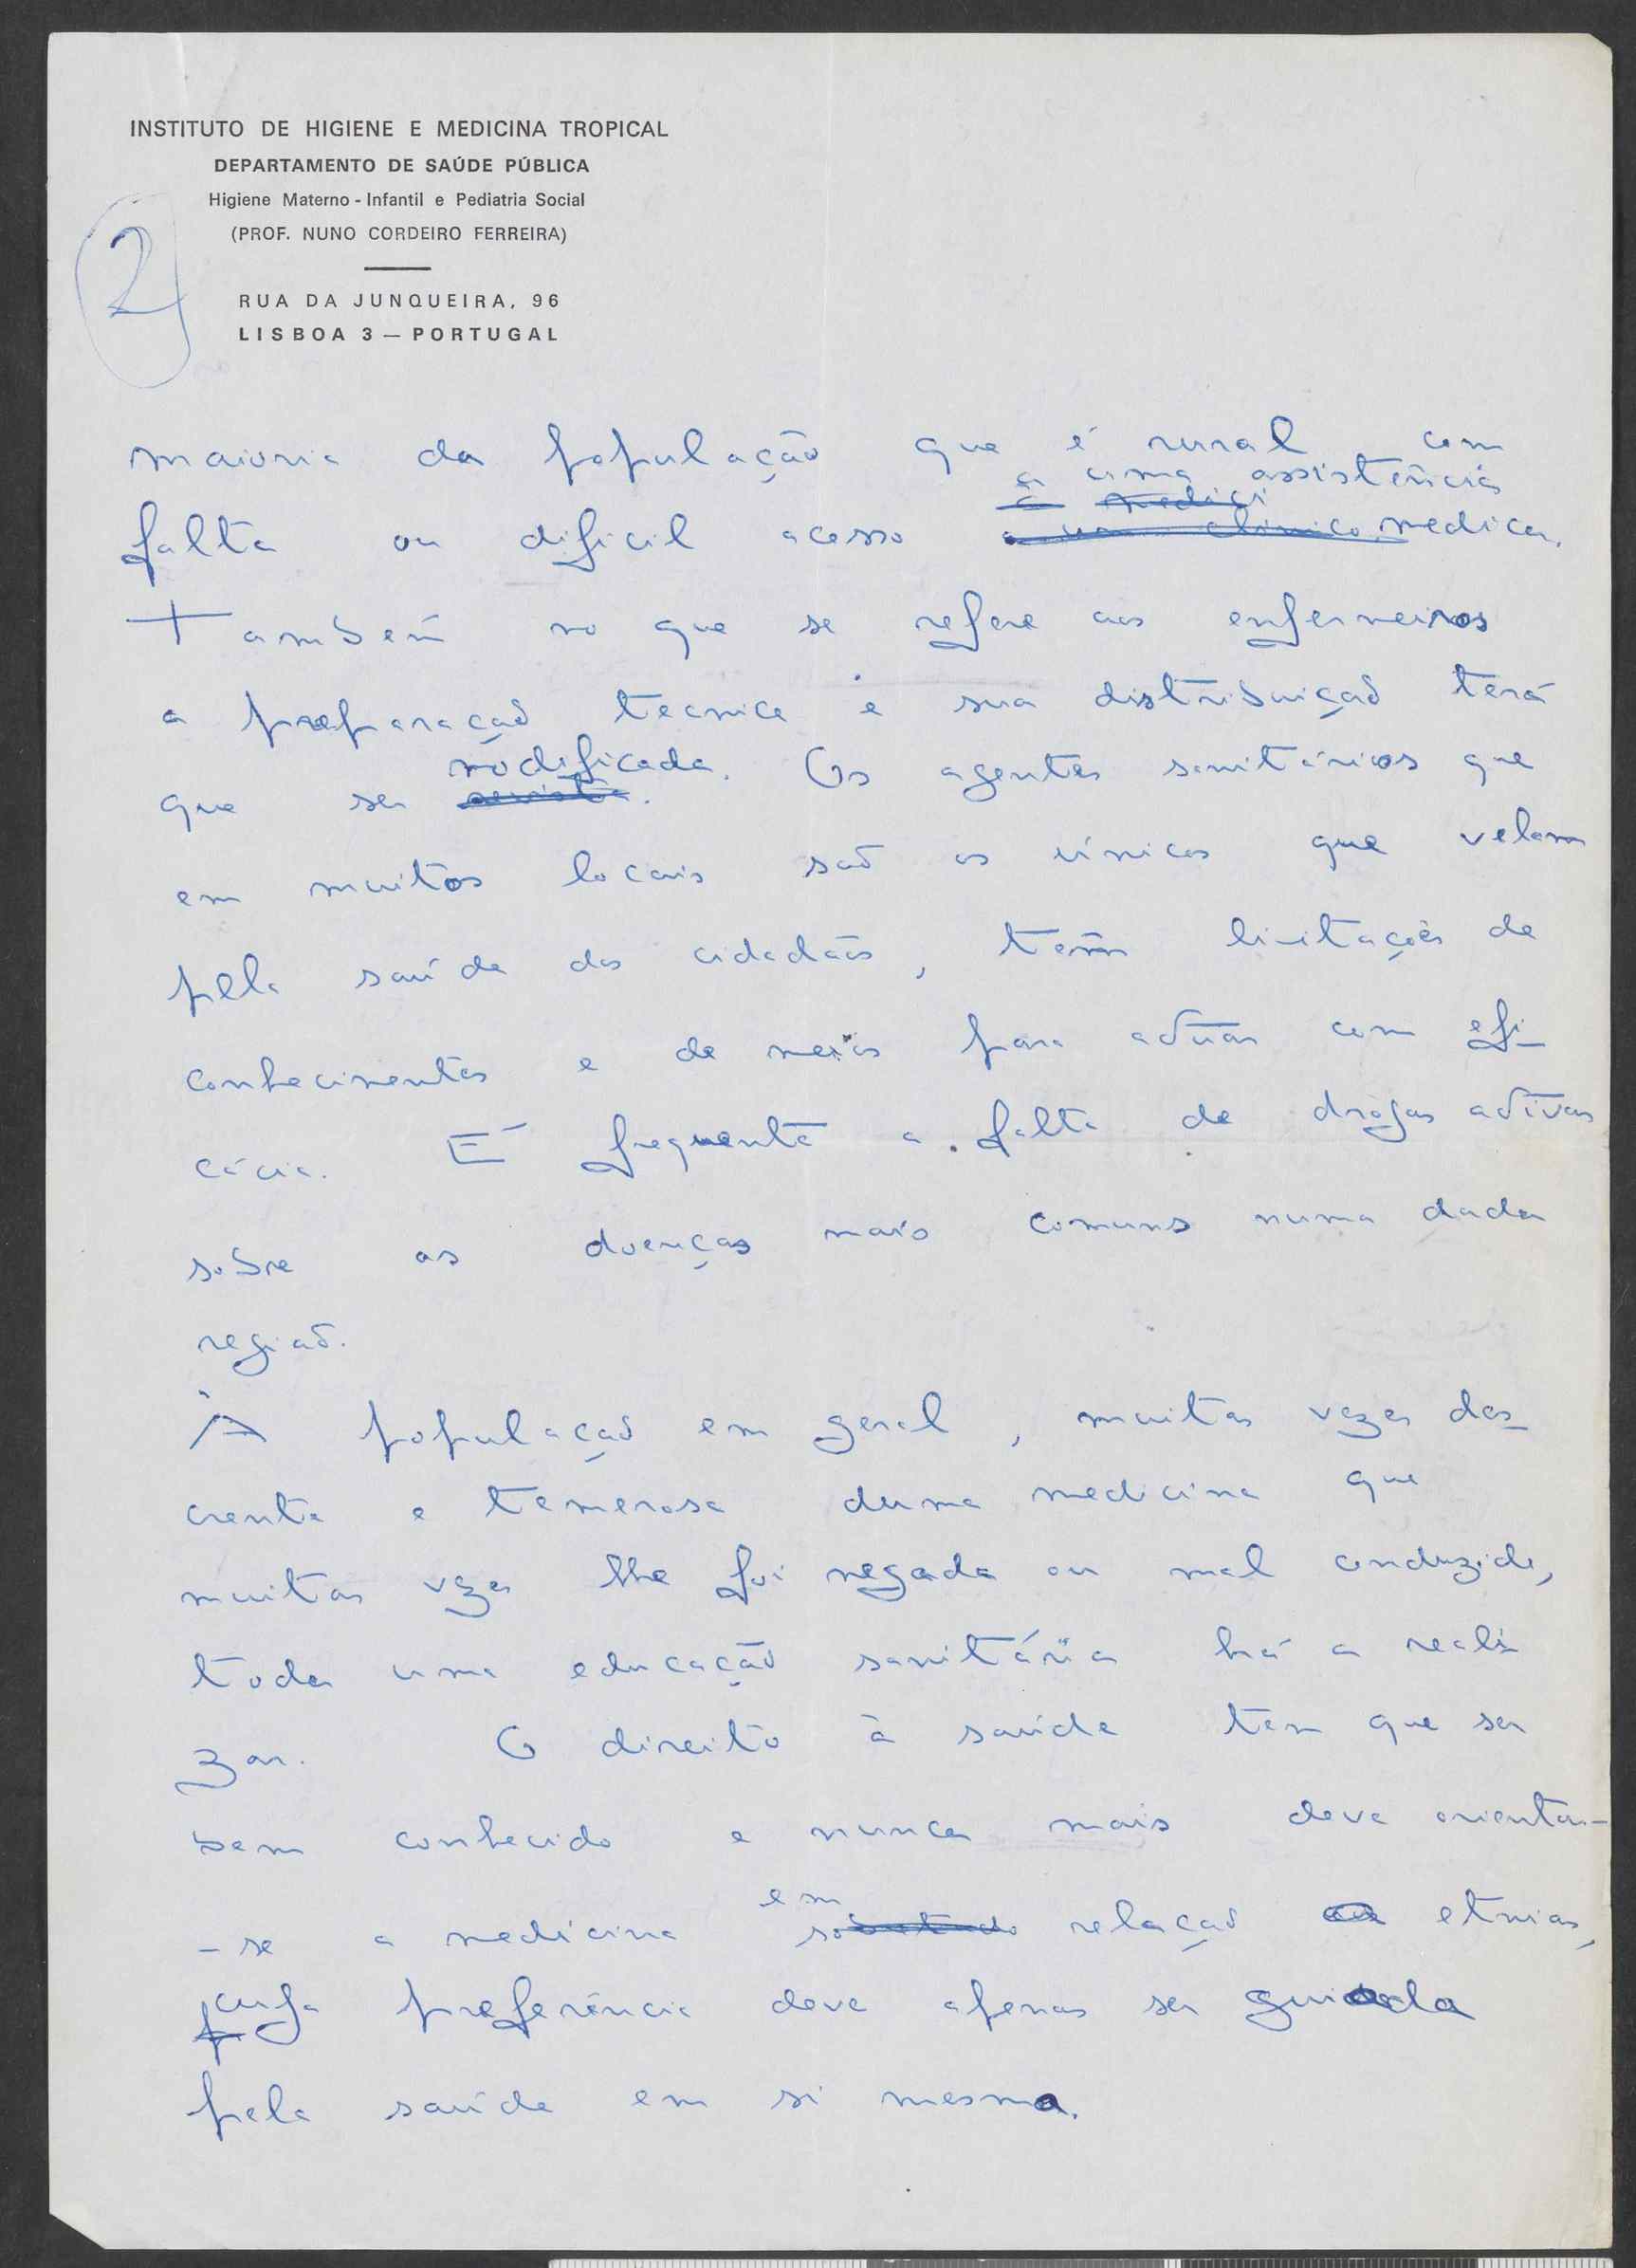 INSTITUTO DE HIGIENE E MEDICINA TROPICAL
DEPARTAMENTO DE SAÚDE PÚBLICA
Higiene Materno - Infantil e Pediatria Social
(PROF. NUNO CORDEIRO FERREIRA)
2
RUA DA JUNQUEIRA, 96
LISBOA 3 — PORTUGAL
maioria da população que é rural com
a uma assistência
a medici
falta ou dificil acesso a um clinico medica.
Também no que se refere aos enfermeiros
a preparação tecnica e sua distribuição terá
modificada. Os agentes sanitários que
que ser revista.
em muitos locais são os únicos que velam
pela saúde dos cidadãos, têm limitações de
conhecimentos e de meios para actuar com efi-
cácia. É frequente a falta de drogas activas
sobre as doenças mais comuns numa dada
região.
À população em geral, muitas vezes des-
crente e temerosa duma medicina que
muitas vezes lhe foi negada ou mal conduzida,
toda uma educação sanitária há a reali-
zar. O direito à saúde tem que ser
bem conhecido e nunca mais deve orientar-
em
-se a medicina sobretudo relação etnias,
cuja preferência deve apenas ser guiada
pela saúde em si mesma.